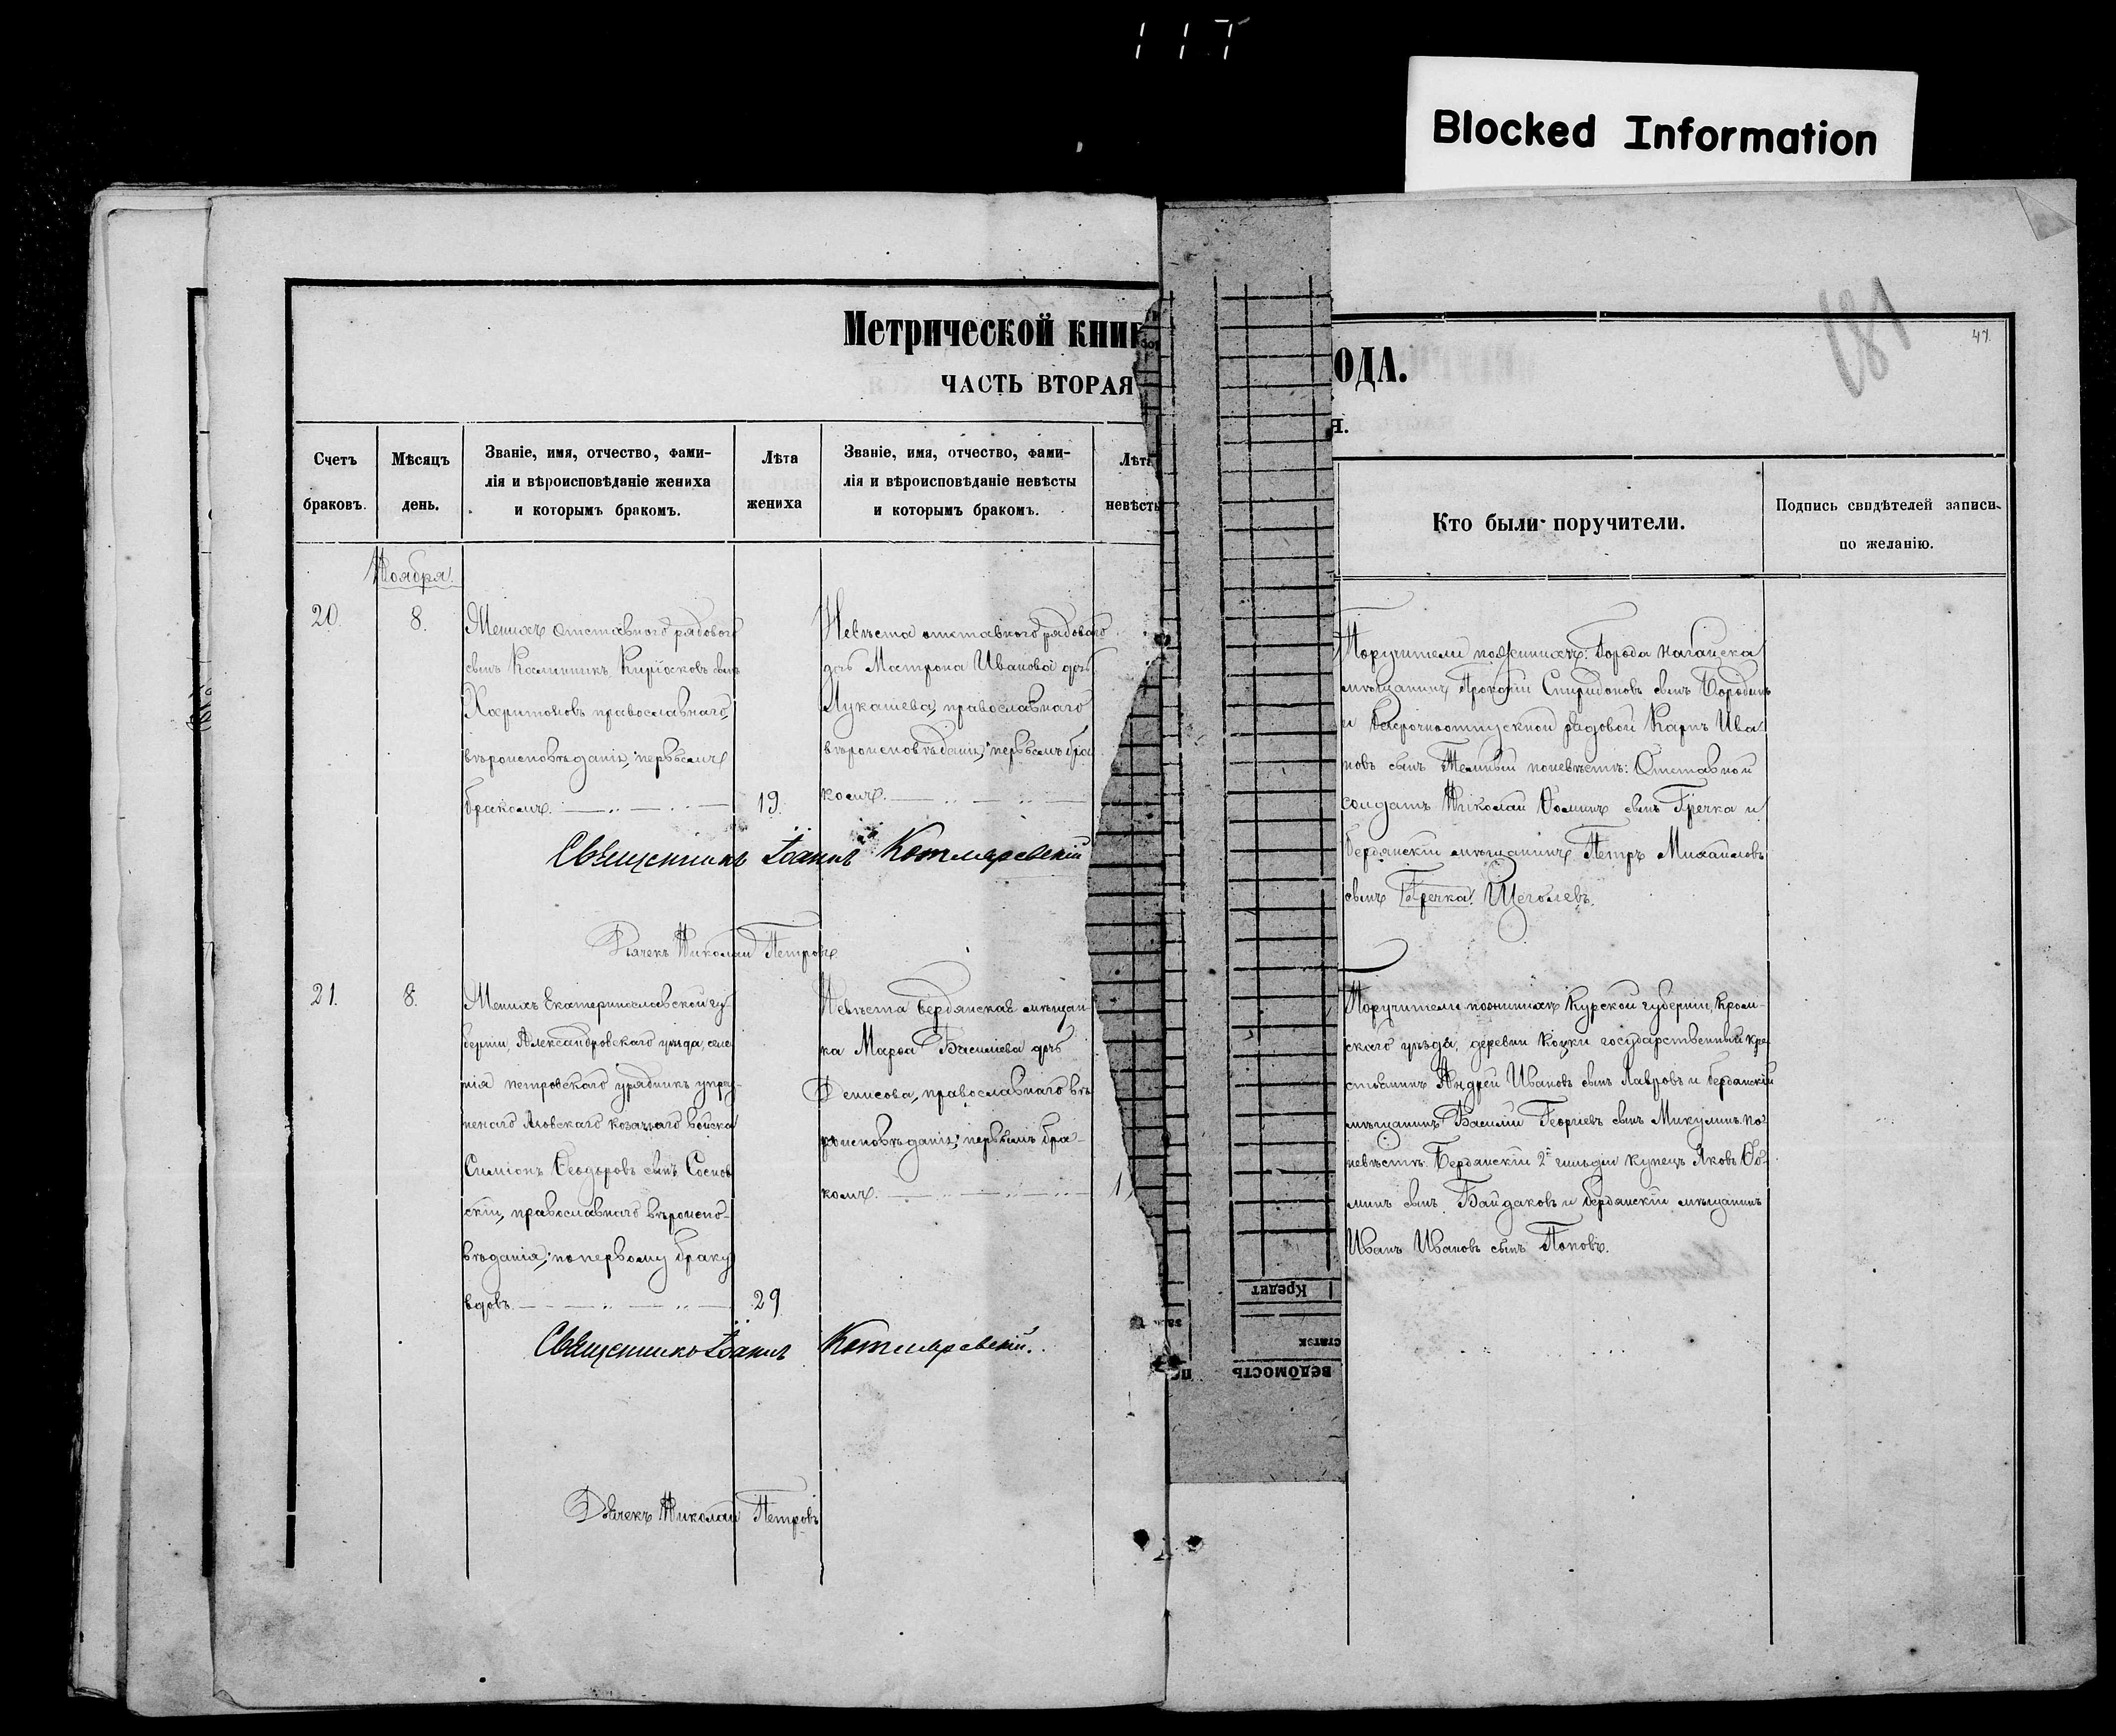 117
Blocked Information
Метрической книг
ЧАСТЬ ВТОРАЯ
Счетъ браковъ.
Мѣсяцъ день.
Званіе, имя, отчество, фами-
лія и вѣроисповѣданіе жениха
и которымъ бракомъ.
Лѣта жениха
Званіе, имя, отчество, фами-
лія и вѣроисповѣданіе невѣсты
и которымъ бракомъ.
Лѣта
невѣсты
Ноября
20.
8.
Женихъ отставного рядового
сынъ Харитоновъ православнаго
вѣроисповѣданія, первымъ
бракомъ.
19.
Невѣста отставного рядового
Матрона Иванова дочь
Лукашева, православнаго
вѣроисповѣданія, первымъ бра
комъ.
Священникъ Іоаннъ Котляревскій
Дьячекъ Николай Петровъ
21.
8.
Женихъ Екатеринославской гу-
берніи, Александровскаго уѣзда, селе-
нія петровскаго урядникъ упраз-
неного Азовскаго козачьяго войска
Симіонъ Ѳеодоровъ сынъ Соснов
скій, православнаго вѣроиспо-
вѣданія, по первому браку
вдовъ.
29
Невѣста бердянская мѣщан-
ка Марѳа Василіева дочь
Денисова, православнаго вѣ-
роисповѣданія, первымъ бра-
комъ.
1
Священникъ Іоаннъ Котляревскій.
Дьячекъ Николай Петровъ
Кредит
статок
ВЕДОМОСТЬ
681
47.
ОДА.
Я.
Кто были поручители.
Подпись свидѣтелей записи
по желанію.
Поручители по женихѣ: Города Нагайска
мѣщанинъ Прокопій Спиридоновъ сынъ Бородинъ
и безсрочноотпускной рядовой Карпъ Ива
новъ сынъ Темный по невѣстѣ: Отставной
солдатъ Николай Ѳоминъ сынъ Гречка и
бердянскій мѣщанинъ Петръ Михайловъ
сынъ Гречка Щеголевъ.
Поручители по женихѣ Курской губерніи, Кром-
скаго уѣзда, деревни государственный кре
стьянинъ Андрей Ивановъ сынъ Лавровъ и бердянскій
мѣщанинъ Василій Георгіевъ сынъ Микулинъ по
невѣстѣ: Бердянскій 2й гильдіи купецъ Яковъ Ѳо-
минъ сынъ Байдаковъ и бердянскій мѣщанинъ
Иванъ Ивановъ сынъ Поповъ.